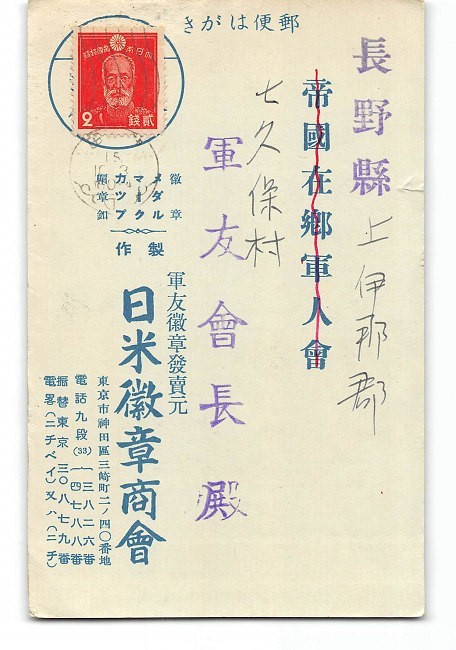 郵便はがき
長野縣上伊那郡
帝國在鄉軍人會
七久保村
軍友會長殿
大日本帝國郵便
貳錢
2
徽章
メダル
マーク
カツプ
襟章釦
製作
軍友徽章發賣元
日米徽章商會
東京市神田區三崎町二ノ四〇番地
電話九段(33)(三八二六番 四七八八番
振替東京三〇八七九番
電畧(ニチベイ)又ハ(ニチ)